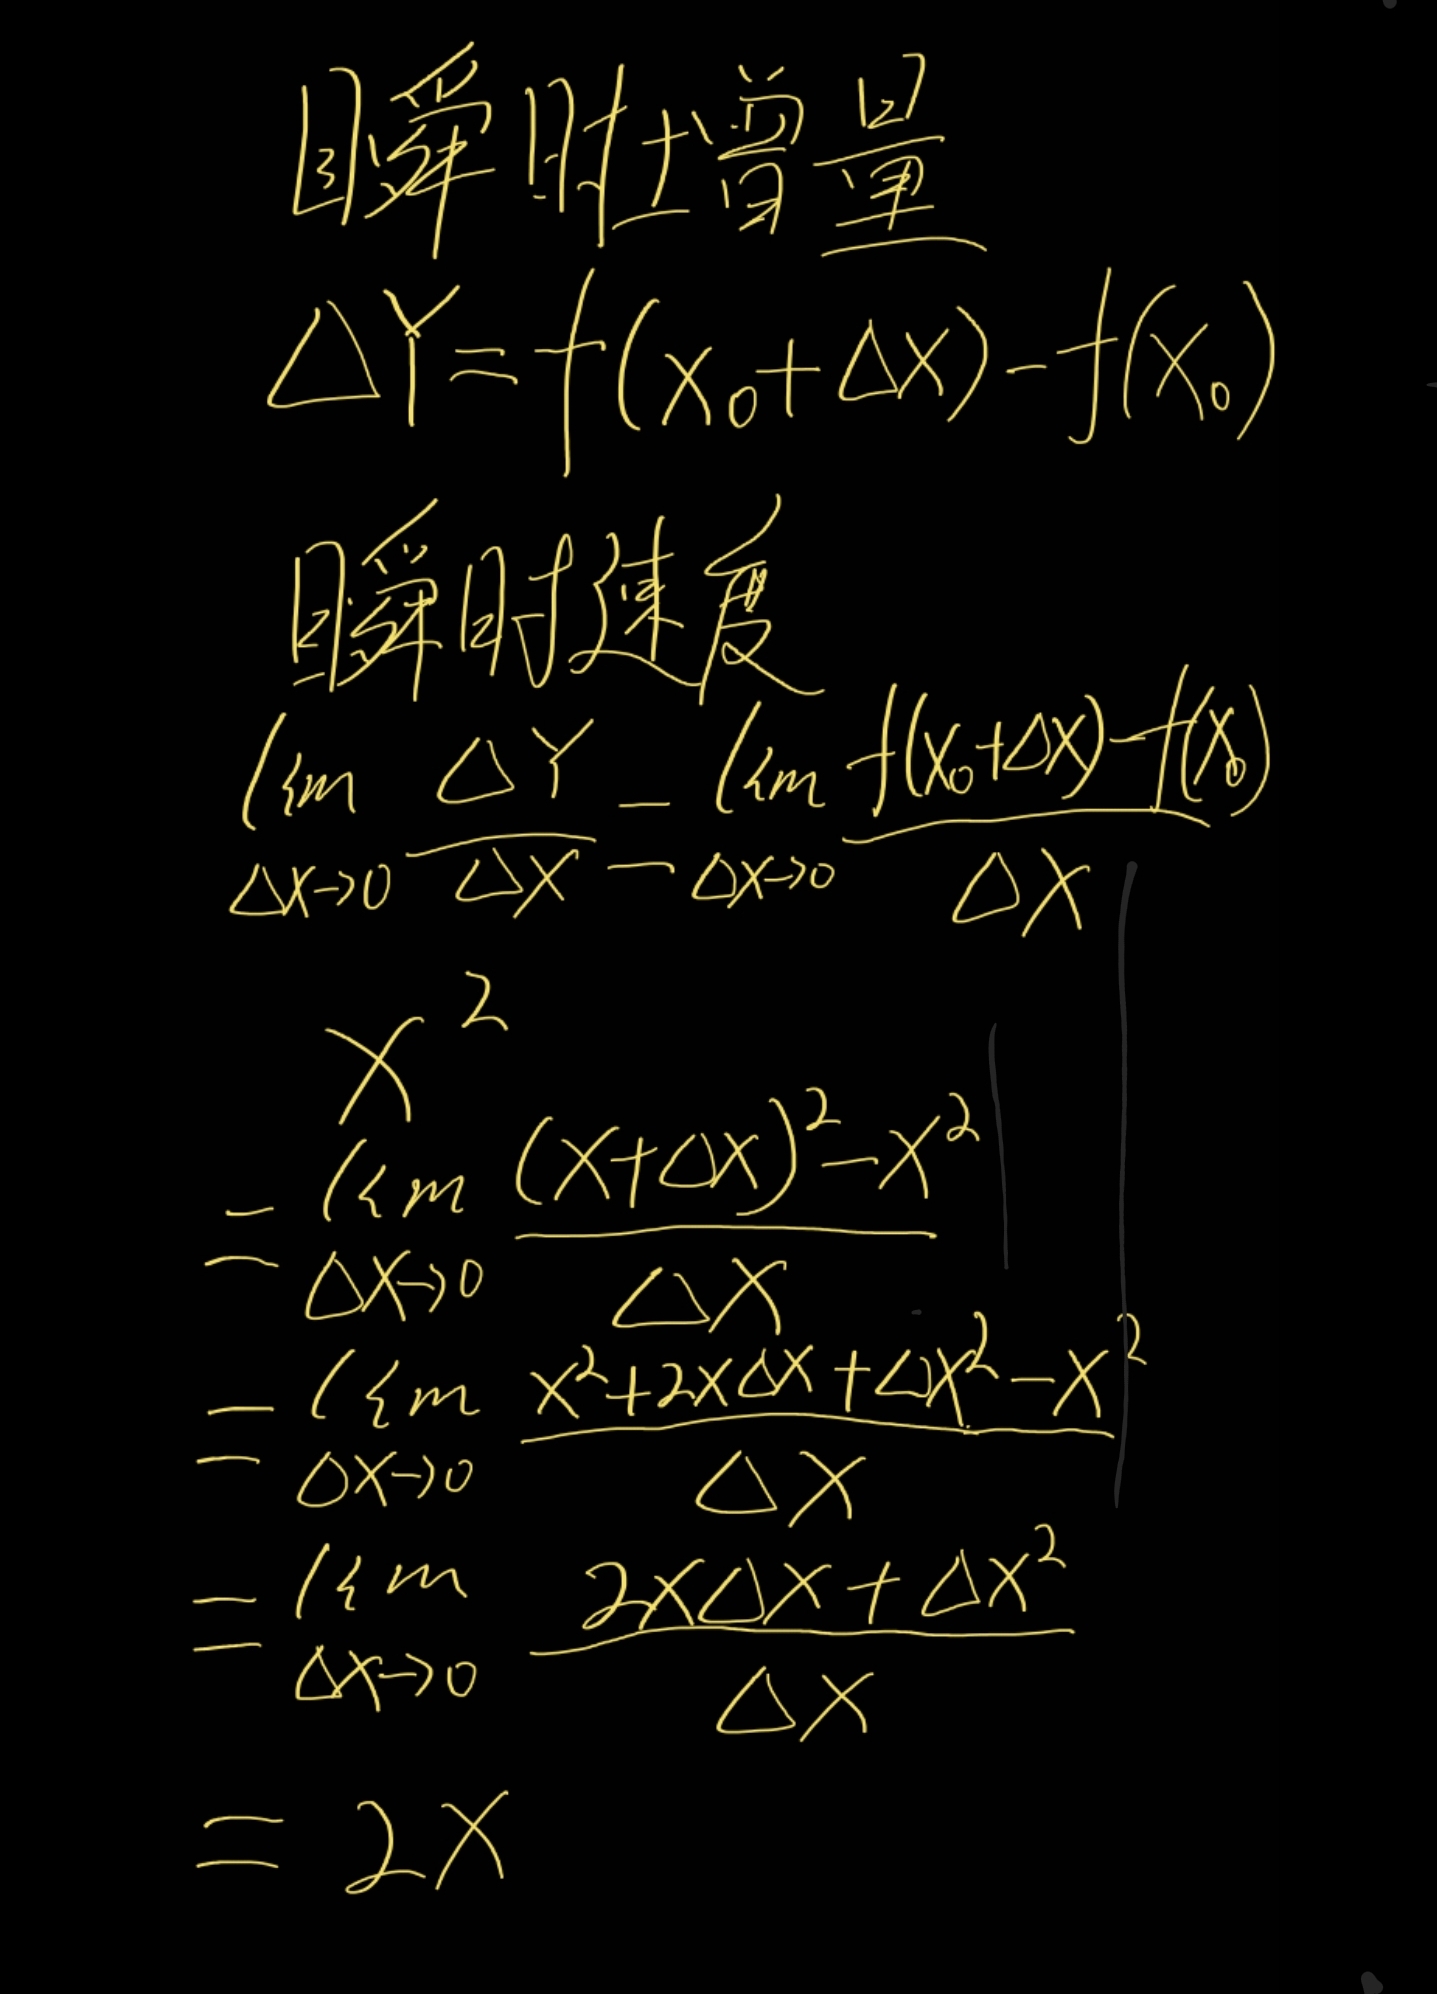 瞬时增量
ΔY=f(x₀+Δx)-f(x₀)
瞬时速度
lim Δx→0 ΔY/Δx = lim Δx→0 (f(x₀+Δx)-f(x₀))/Δx
x²
= lim Δx→0 ((x+Δx)²-x²)/Δx
= lim Δx→0 (x²+2xΔx+Δx²-x²)/Δx
= lim Δx→0 (2xΔx+Δx²)/Δx
= 2x